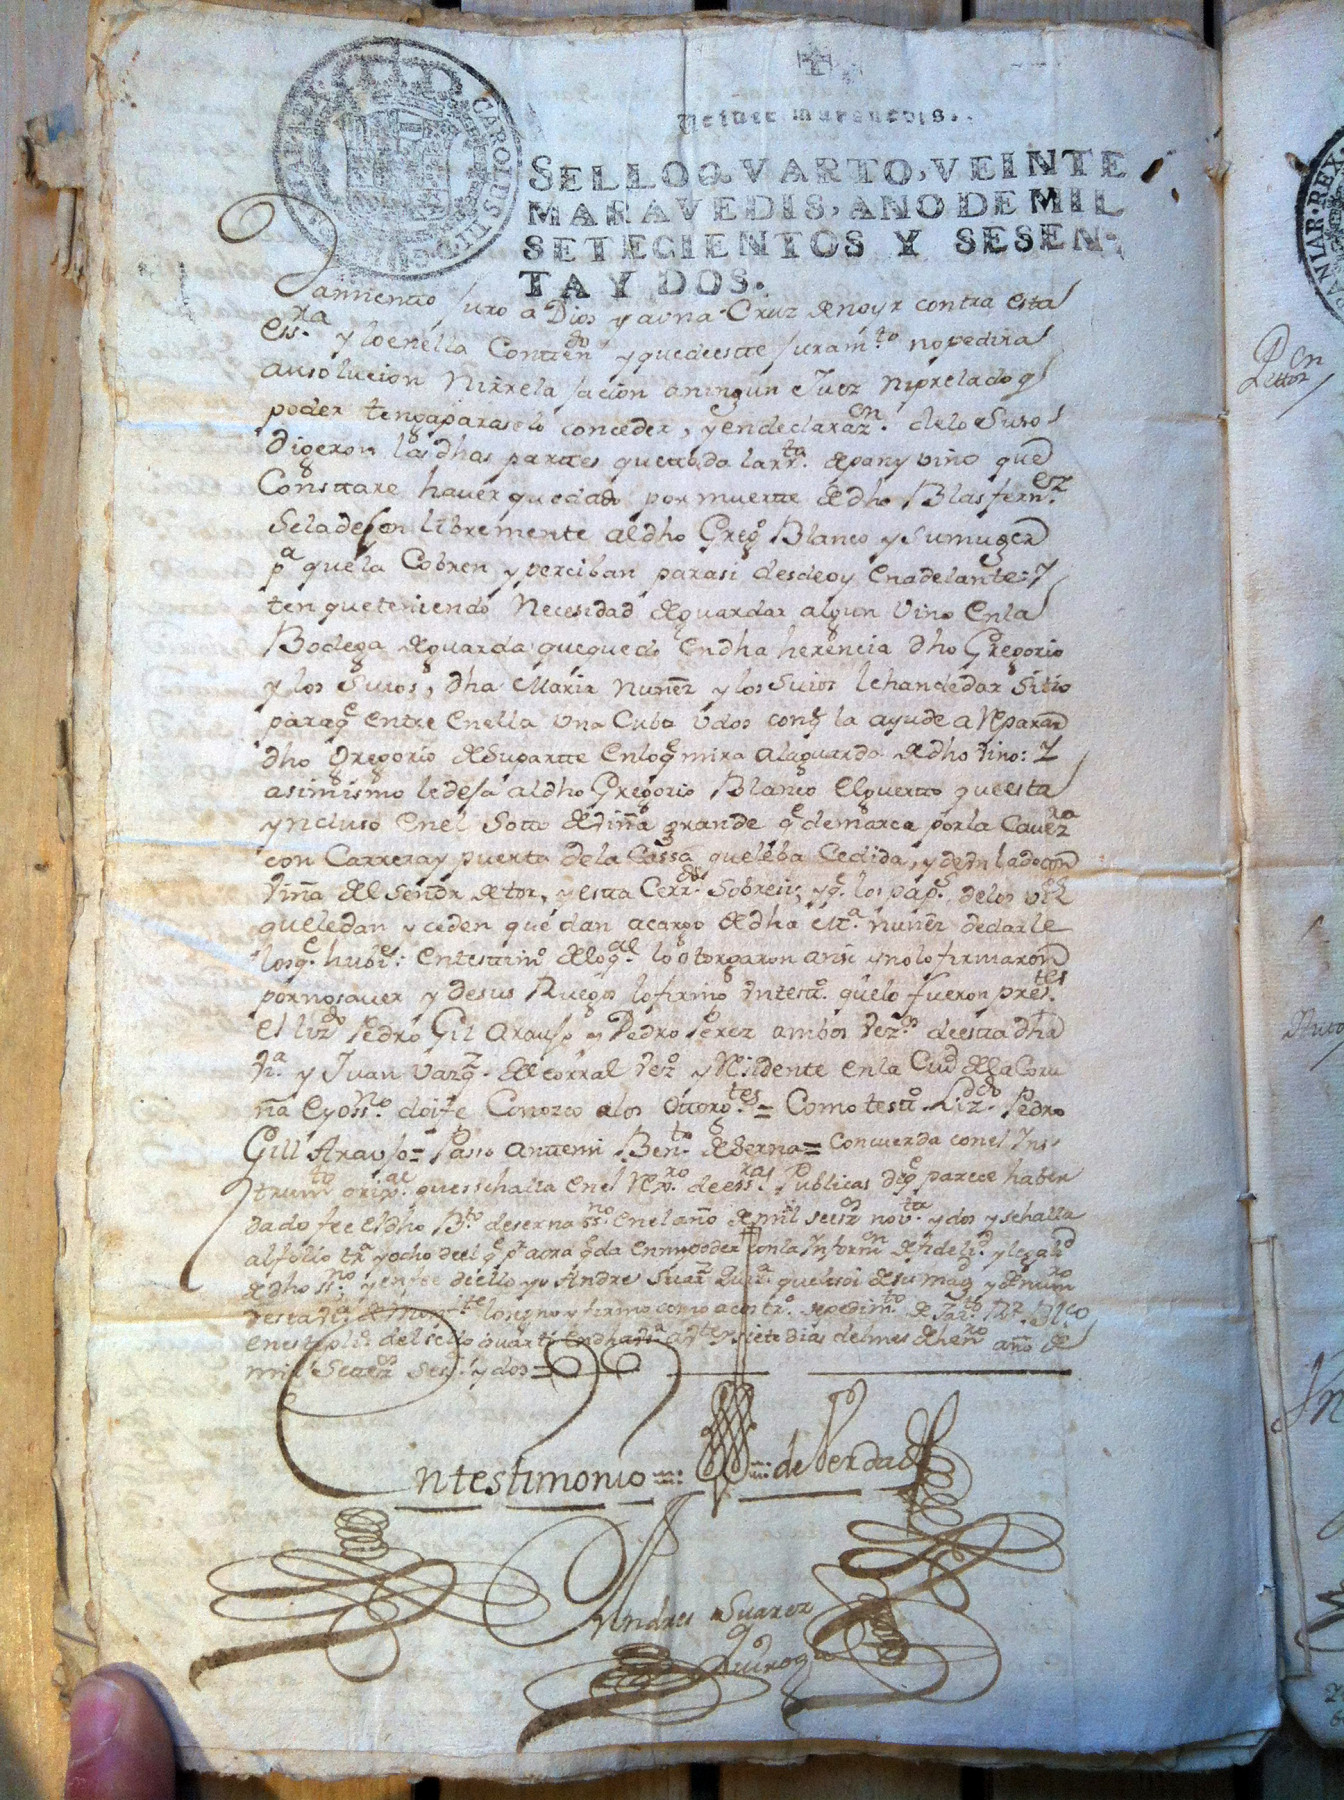 CAROLUS III
Veinte maravedis.
SELLO QVARTO, VEINTE
MARAVEDIS, AÑO DE MIL
SETECIENTOS Y SESEN-
TA Y DOS.
Juro a Dios y a una Cruz de no yr contra esta
essra y lo en ella Conttendo y que de estte Juramto no pedira
ausolucion Nirrelajacion a ningun Juez niprelado q
poder tenga para se lo conceder, y en declarazn delo Suso
digeron las dhas parttes que ttoda la rrta de pan y vino que
Consttare haver quedado por muertte de dho Blas fernez
Se la dejan libremente al dho Grego Blanco y Su muger
pa que la Cobren y perciban para si desde oy en adelante: Y
ten que teniendo Necesidad de guardar algun Vino en la
Bodega de guarda que quedo en dha herencia dho Gregorio
y los Suios, dha Maria nuñez y los Suios le han de dar Sitio
para qe entre en ella una Cuba u dos con q la ayude a Reparar
dho Gregorio de Su partte en lo qe mira a la guarda de dho vino: Y
asimismo le deja al dho Gregorio Blanco el guertto que esta
yncluso en el Sotto de viña grande qe demarca por la Cavezra
con Carrera y puerta de la Cassa que lleba Cedida, y de un lado con
viña del Señor de tor, y esta
que le dan y ceden quedan a cargo de dha Ma nuñez de darle
los qe hubie: en testtimo de lo qal lo otorgaron ansi y no lo firmaron
por no saver y de sus Ruegos lo firmo un testo que lo fueron prestes
el lizdo Pedro Gil Araujo y Pedro Perez ambos vezos de esta dha
va y Juan Vazqz de Corral vezo y Residente en la Ciud de la Coru
ña e yo sno doi fe Conozco a los Ottorgtes = Como testto Lizdo Pedro
Gill Araujo = Passo antte mi Bento de Serna = Concuerda con el Ins
trumto origal que se halla en el Rexro de essras Publicas de qe parece haber
dado fee el dho Bto de Serna sno en el año de mil seisz novta y dos y se halla
al folio tra y ocho de el qe pr aora qda en mi poder con la Informn de fidelid y legald
de dho sno y en fee de ello yo Andre Suarz Quira que lo soi de su mag y de numro
de esta va de lo signo y firmo como acostro a pedimto de
en este plio del sello quarto en dha va a siete dias del mes de henro año de
mil Settezos ses y dos =
En testimonio de Verdad
Andres Suarez
Quiroga